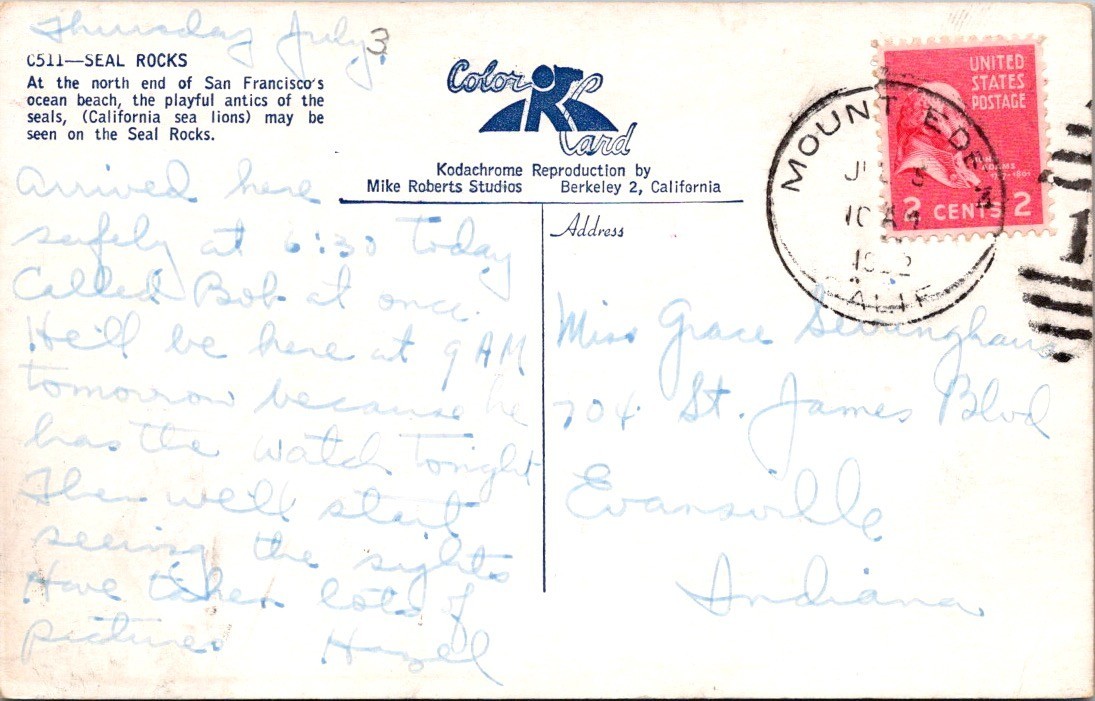 Thursday July 3
C511—SEAL ROCKS
At the north end of San Francisco's
ocean beach, the playful antics of the
seals, (California sea lions) may be
seen on the Seal Rocks.
Color Card
Kodachrome Reproduction by
Mike Roberts Studios Berkeley 2, California
UNITED
STATES
POSTAGE
JOHN
ADAMS
2 CENTS 2
MOUNT EDEN
10 AM
CALIF
1
arrived here
safely at 6:30 today
Called Bob at once.
He'll be here at 9 AM
tomorrow because he
has the watch tonight
Then we'll start
seeing the sights
Have taken lots of
pictures Hazel
Address
Miss Grace Sevringhaus
704 St. James Blvd
Evansville
Indiana